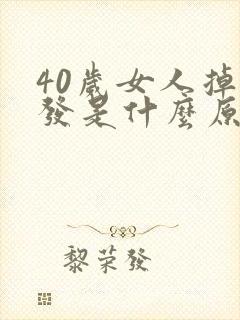 40歲女人掉
發是什麼原
黎荣發